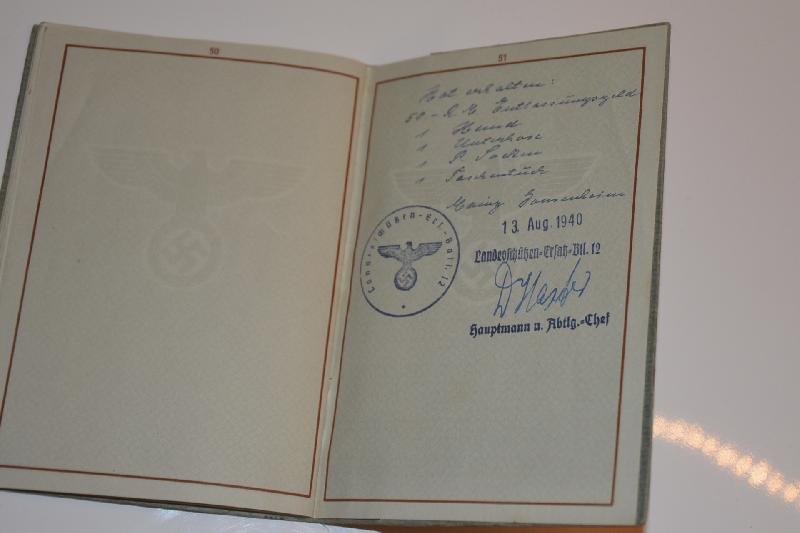 50
51
Hat erhalten:
50.- R.M. Entlassungsgeld
1 Hemd
1 Unterhose
1 P. Socken
1 Taschentuch
Mainz Gonsenheim
13. Aug. 1940
Landesschützen-Ersatz-Btl. 12
Hauptmann u. Abtlg.-Chef
Landesschützen-Ers.-Batl. 12